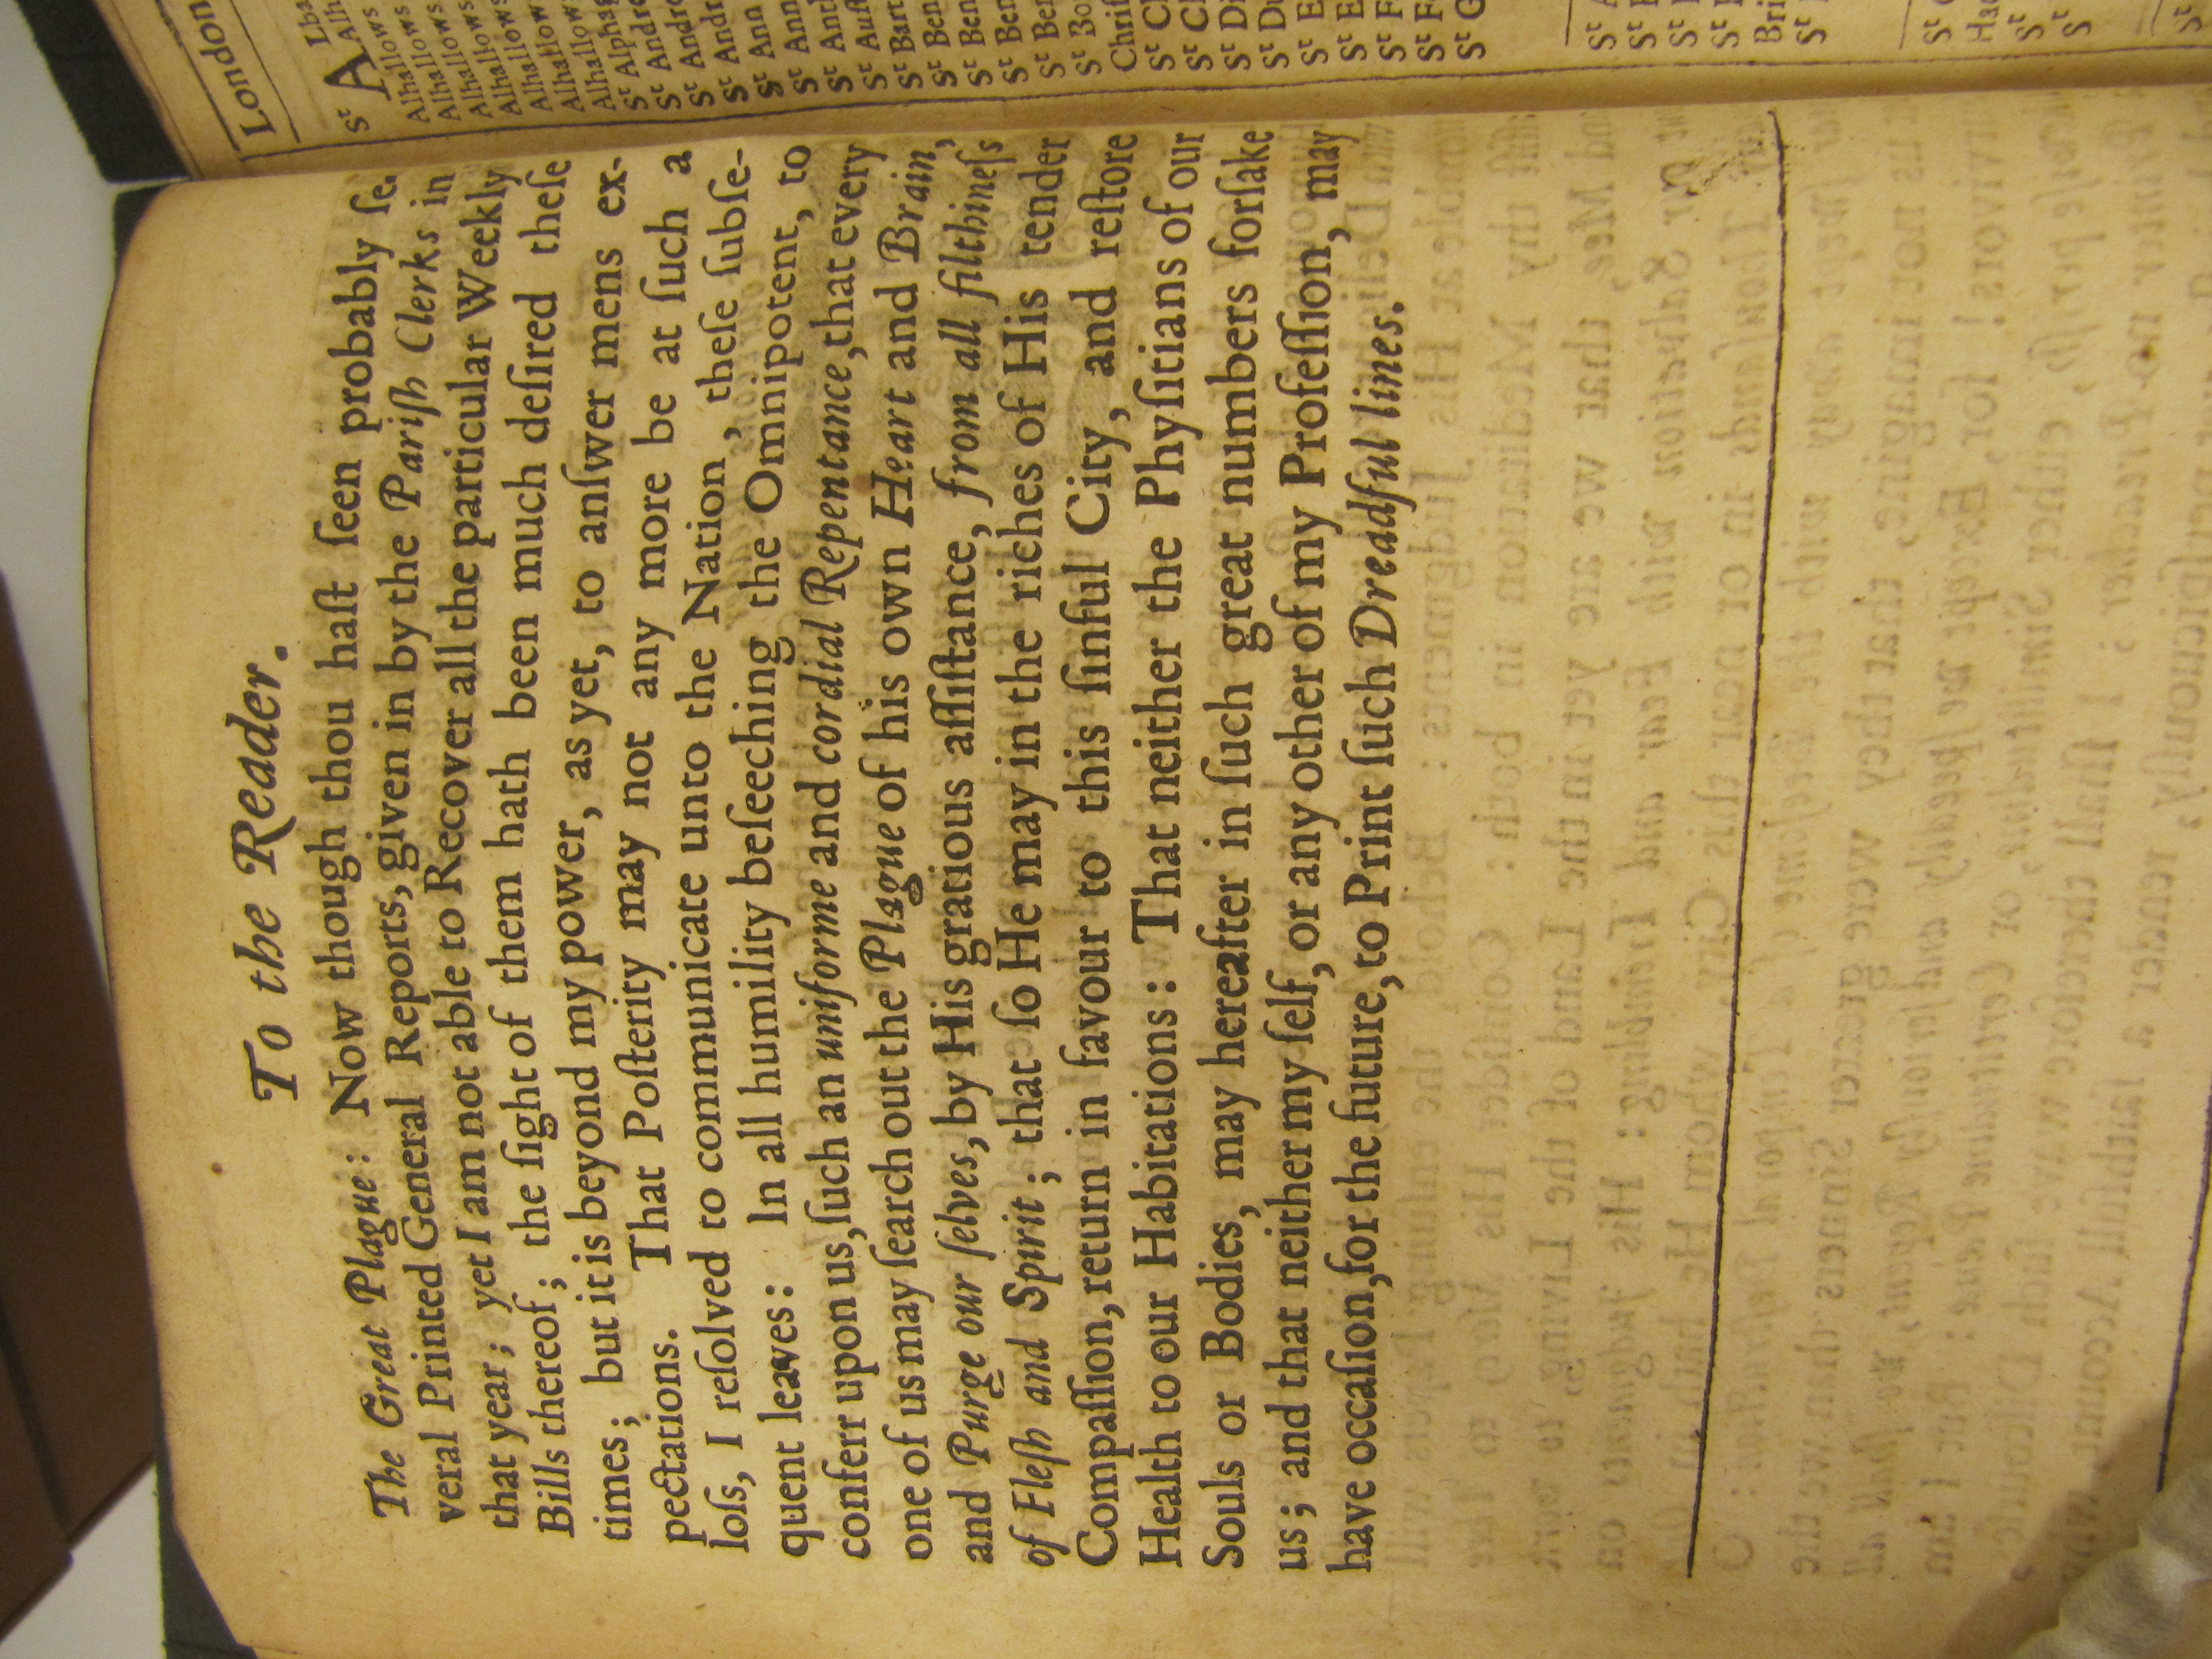 To the Reader.
The Great Plague: Now though thou haſt ſeen probably ſe-
veral Printed General Reports, given in by the Pariſh Clerks in
that year; yet I am not able to Recover all the particular Weekly
Bills thereof; the ſight of them hath been much deſired theſe
times; but it is beyond my power, as yet, to anſwer mens ex-
pectations. That Poſterity may not any more be at ſuch a
loſs, I reſolved to communicate unto the Nation, theſe ſubſe-
quent leaves: In all humility beſeeching the Omnipotent, to
conferr upon us, ſuch an uniforme and cordial Repentance, that every
one of us may ſearch out the Plague of his own Heart and Brain,
and Purge our ſelves, by His gratious aſſiſtance, from all filthineſs
of Fleſh and Spirit; that ſo He may in the riches of His tender
Compaſſion, return in favour to this ſinful City, and reſtore
Health to our Habitations: That neither the Phyſitians of our
Souls or Bodies, may hereafter in ſuch great numbers forſake
us; and that neither my ſelf, or any other of my Profeſſion, may
have occaſion, for the future, to Print ſuch Dreadful lines.
London
St A
Alhallows
Alhallows
Alhallows
Alhallows
Alhallows
Alhallows
Alhallows
St Alphag
St Andre
St Andre
St Andr
St Ann
St Ann
St Ant
St Auſt
St Bart
St Ben
St Ben
St Ben
St Bo
Chriſ
St Cl
St Cl
St Di
St Du
St E
St E
St F
St F
St G